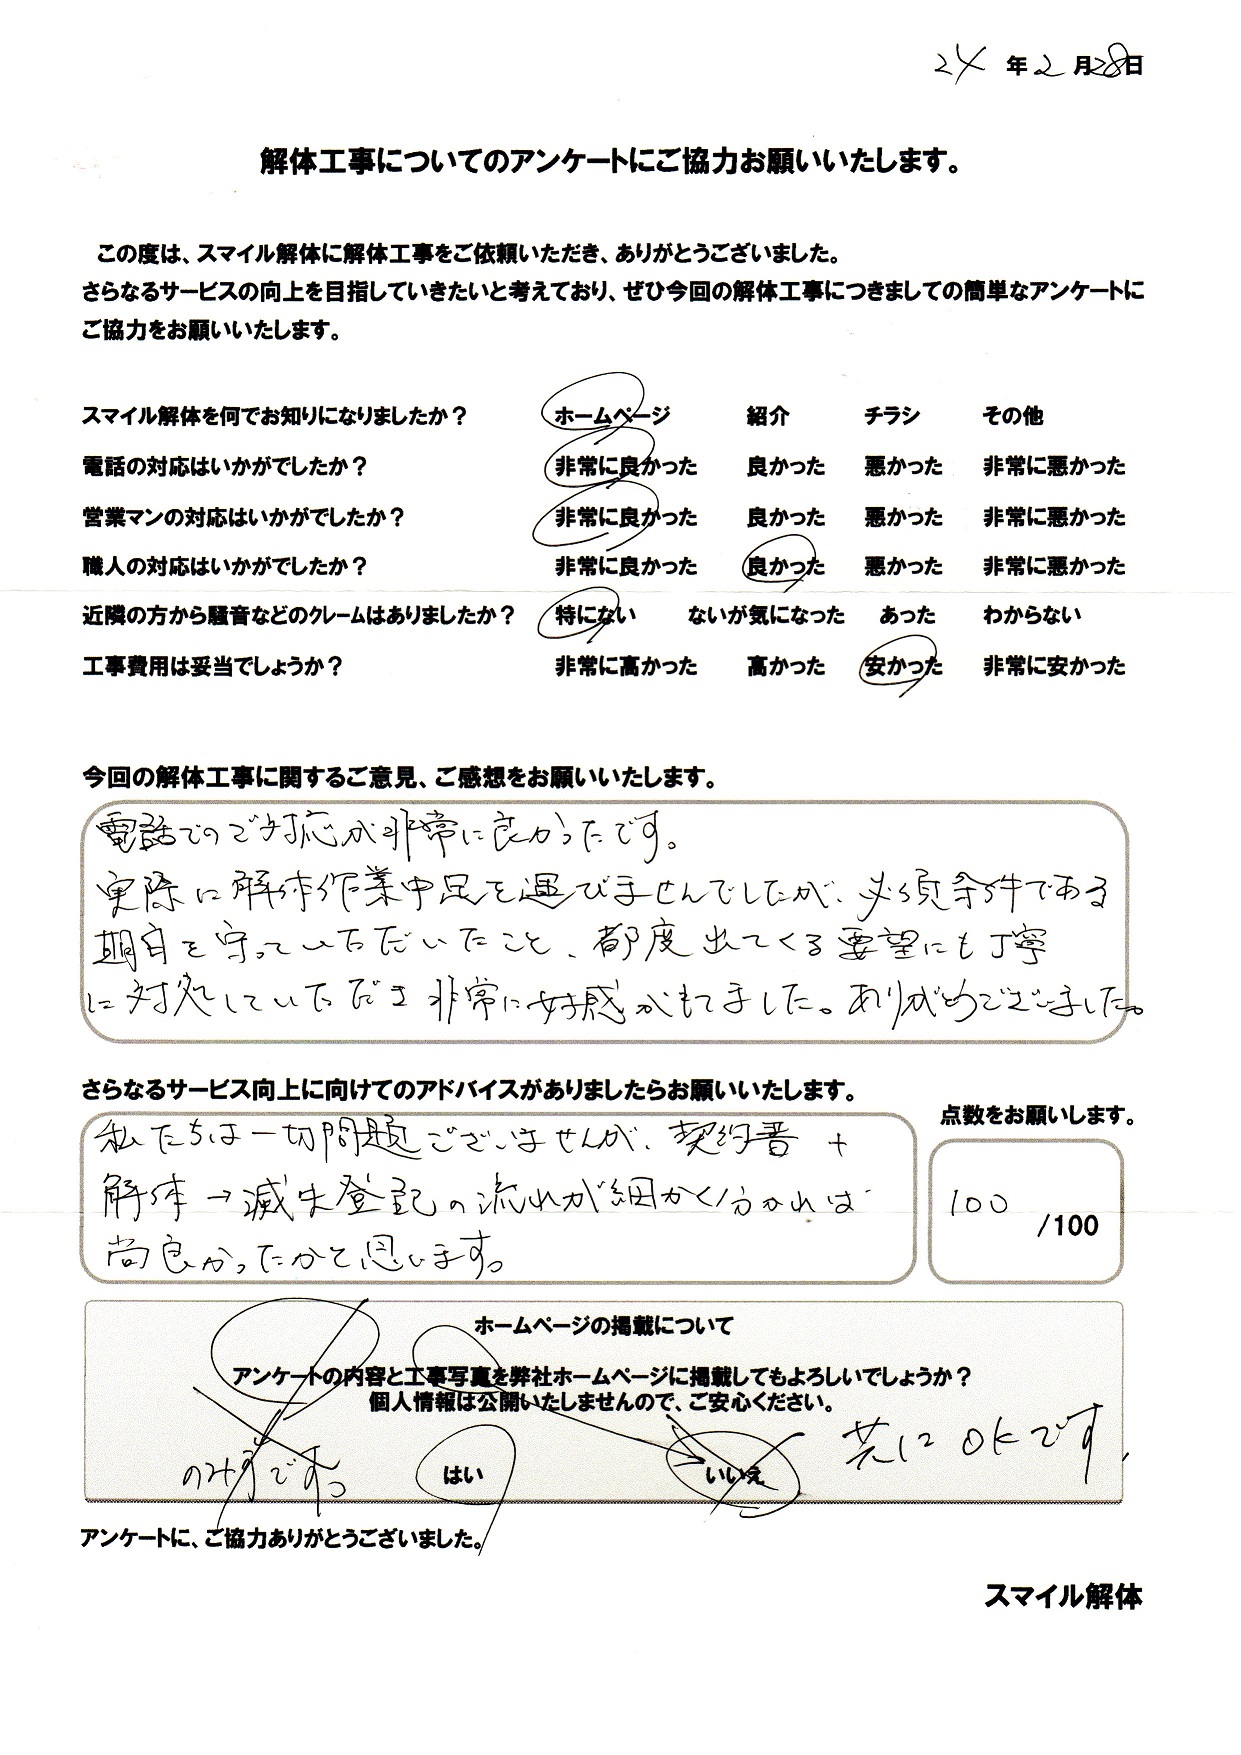 24年2月28日
解体工事についてのアンケートにご協力お願いいたします。
この度は、スマイル解体に解体工事をご依頼いただき、ありがとうございました。
さらなるサービスの向上を目指していきたいと考えており、ぜひ今回の解体工事につきましての簡単なアンケートに
ご協力をお願いいたします。
スマイル解体を何でお知りになりましたか？ ホームページ 紹介 チラシ その他
電話の対応はいかがでしたか？ 非常に良かった 良かった 悪かった 非常に悪かった
営業マンの対応はいかがでしたか？ 非常に良かった 良かった 悪かった 非常に悪かった
職人の対応はいかがでしたか？ 非常に良かった 良かった 悪かった 非常に悪かった
近隣の方から騒音などのクレームはありましたか？ 特にない ないが気になった あった わからない
工事費用は妥当でしょうか？ 非常に高かった 高かった 安かった 非常に安かった
今回の解体工事に関するご意見、ご感想をお願いいたします。
電話でのご対応が非常に良かったです。
実際に解体作業中足を運びませんでしたが、必須条件である
期日を守っていただいたこと、都度出てくる要望にも丁寧
に対処していただき非常に好感がもてました。ありがとうございました。
さらなるサービス向上に向けてのアドバイスがありましたらお願いいたします。
点数をお願いします。
私たちは一切問題ございませんが、契約書+
解体→滅失登記の流れが細かく分かれば
尚良かったかと思います。
100/100
ホームページの掲載について
アンケートの内容と工事写真を弊社ホームページに掲載してもよろしいでしょうか？
個人情報は公開いたしませんので、ご安心ください。
共にOKです
のみ可です。 はい いいえ
アンケートに、ご協力ありがとうございました。
スマイル解体